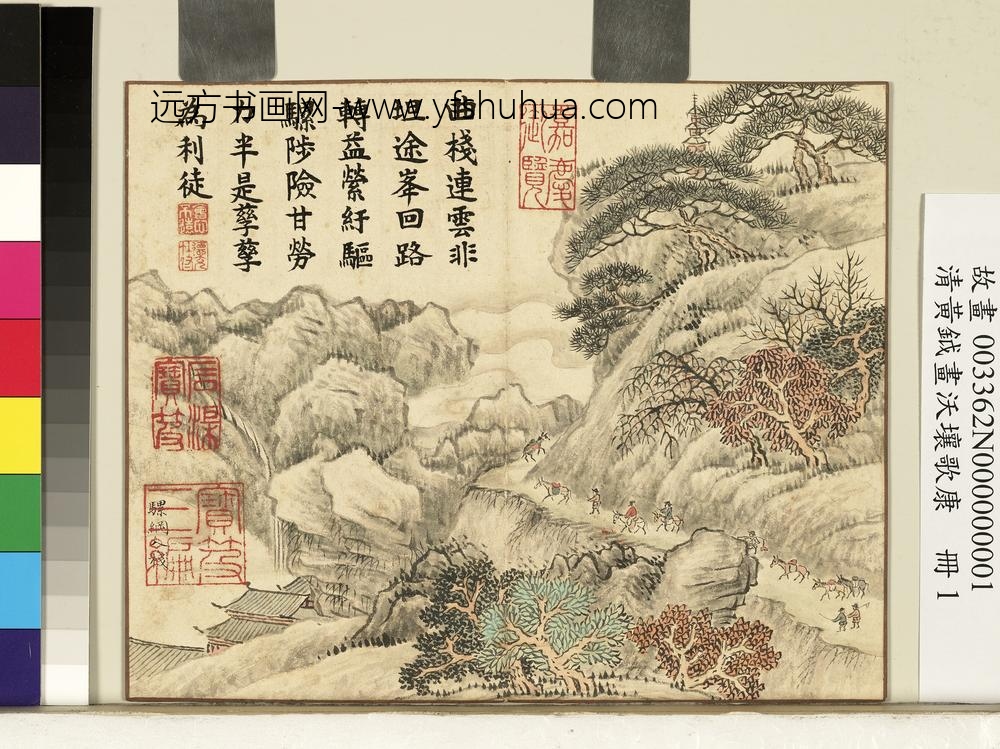 远方书画网--www.yfshuhua.com
曲棧連雲非
坦途峯回路
轉益縈紆驅
騾陟險甘勞
力半是孳孳
為利徒
嘉慶
御覽
寶笈
三編
騾綱
故畫 003362N000000001
清黃鉞畫沃壤歌康 冊 1